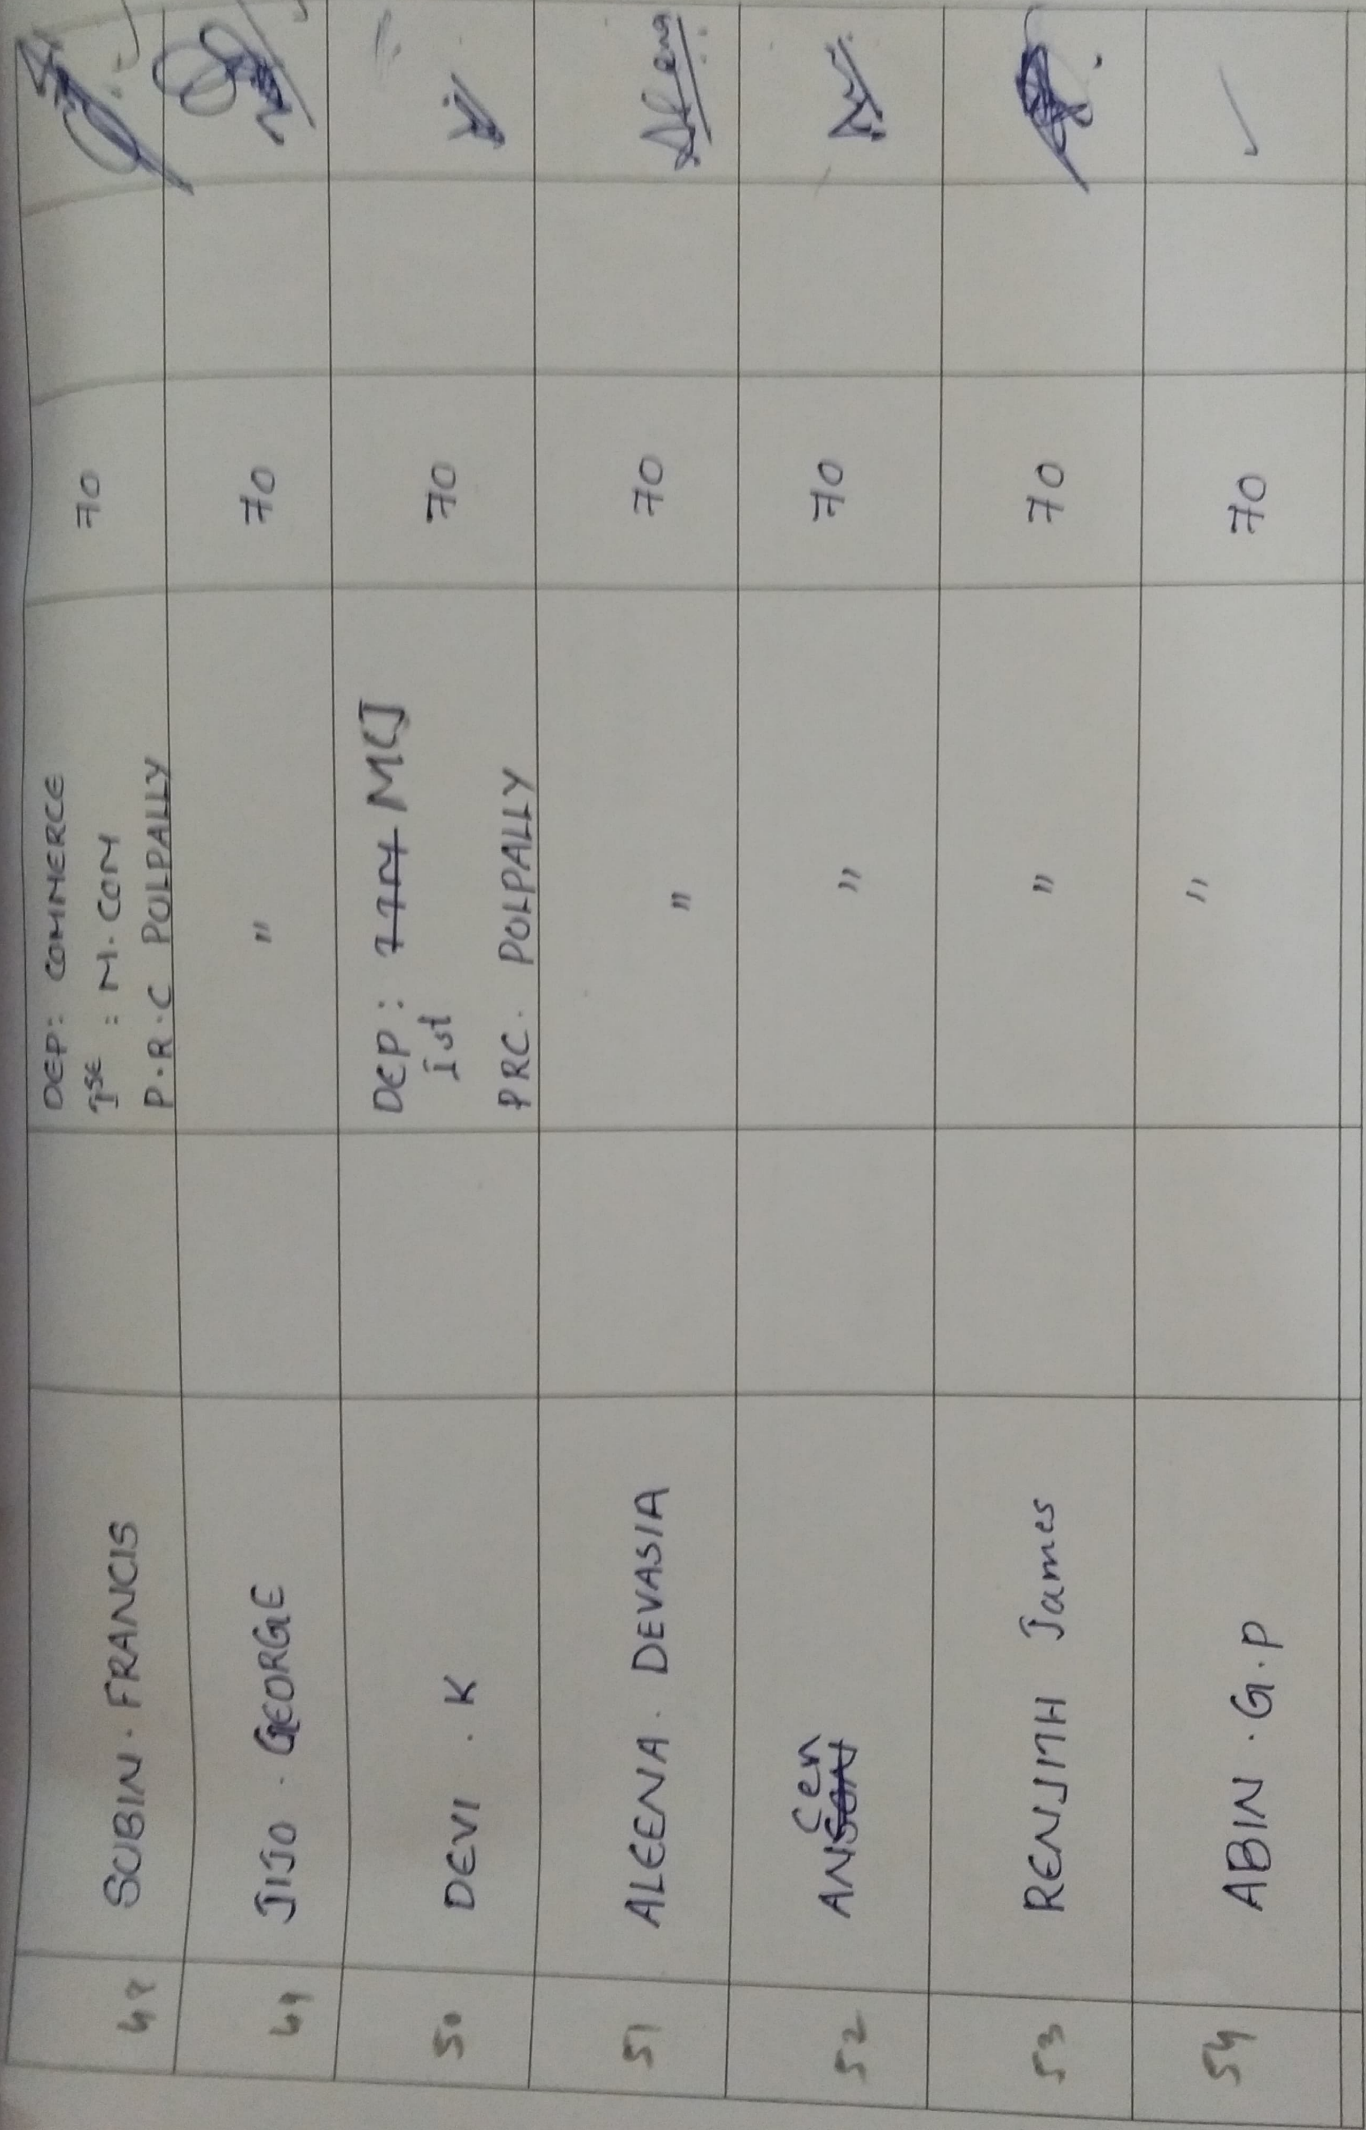 48 SOBIN . FRANCIS DEP: COMMERCE 70
Ist : M. COM
P.R.C PULPALLY
49 JIJO . GEORGE " 70
50 DEVI . K DEP : MCJ 70
Ist
PRC. PULPALLY
51 ALEENA . DEVASIA " 70
52 ANCEN " 70
53 RENJITH James " 70
54 ABIN . G.P " 70